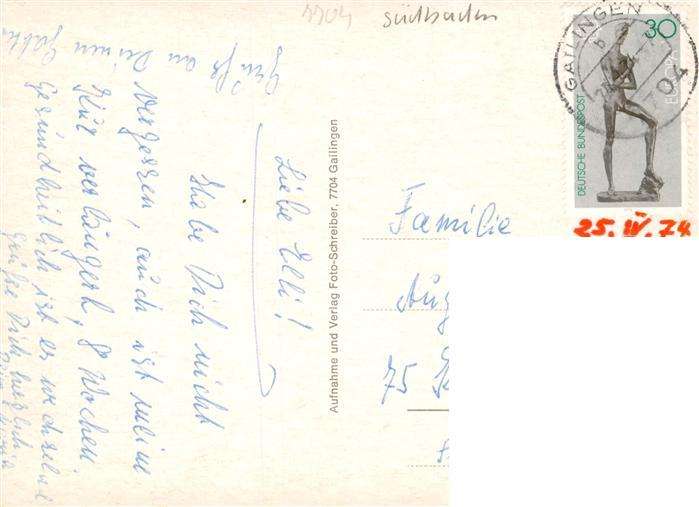 7704 Südbaden
Liebe Elli!
Habe Dich nicht
vergessen, auch ist meine
Kur verlängert, 8 Wochen
Gesundheitlich ist es wechselnd
grüße Dich herzlich
Grüße an Deinen Gatten
Aufnahme und Verlag Foto-Schreiber, 7704 Gailingen
Familie
Aug
75
GAILINGEN
b
7704
30
EUROPA
DEUTSCHE BUNDESPOST
25. IV. 74